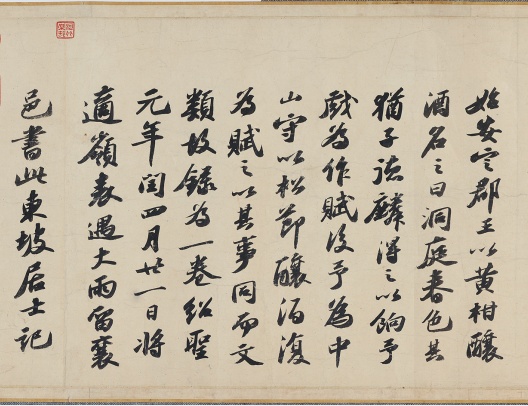 始安定郡王以黄柑釀
酒名之曰洞庭春色其
猶子德麟得之以餉予
戲為作賦後予為中
山守以松節釀酒復
為賦之以其事同而文
類故錄為一卷紹聖
元年閏四月廿一日將
適嶺表遇大雨留襄
邑書此東坡居士記